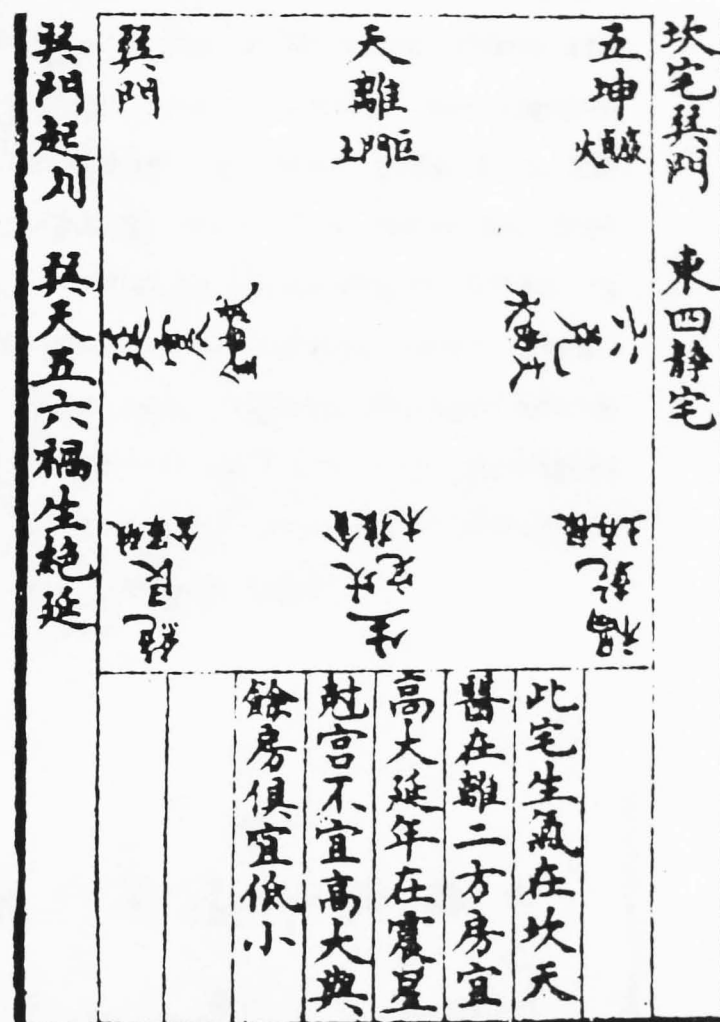 坎宅巽門　東四靜宅
五坤
天離
土門巨
巽門
六兌
延震
禍乾
土存祿
生坎宅
木狼貪
絕艮
金軍破
此宅生氣在坎天
醫在離二方房宜
高大延年在震星
尅宮不宜高大與
餘房俱宜低小
巽門起例　巽天五六禍生絕延